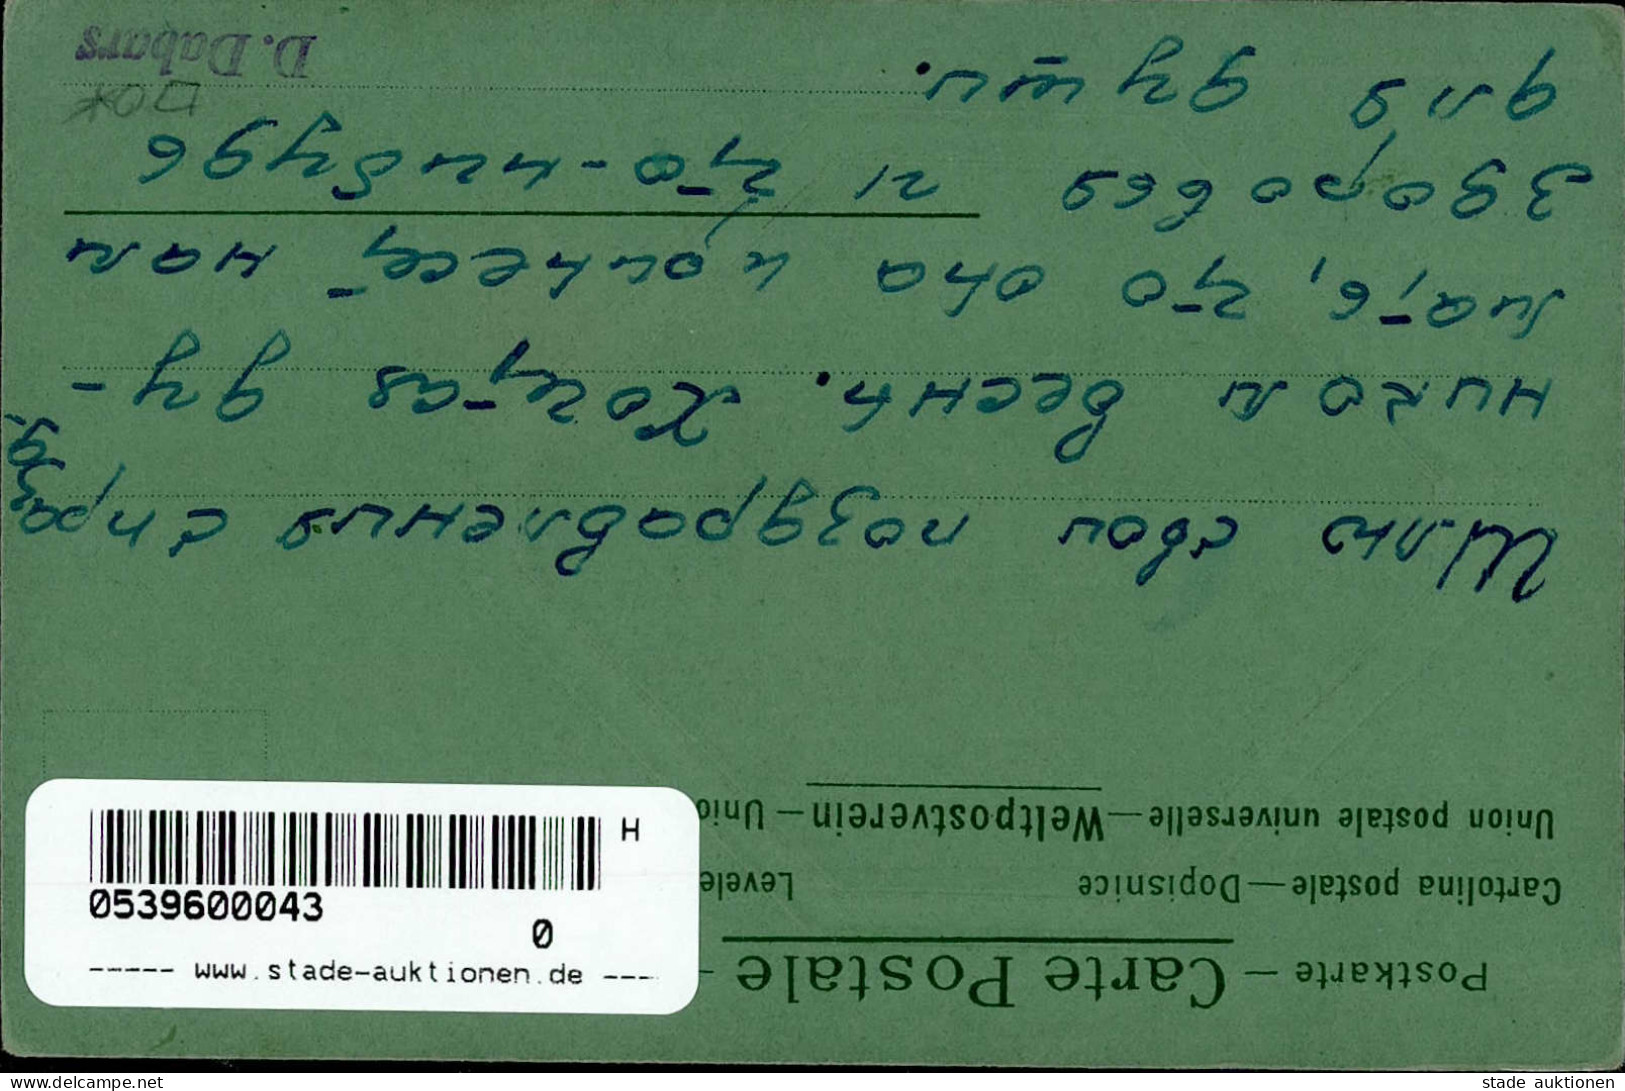 Postkarte — Carte Postale —
Cartolina postale — Dopisnice Levele
Union postale universelle — Weltpostverein — Unio
Шлю свои поздравления с празд-
ником весны. Хочется ду-
мать, что она принесет нам
здоровья и что-нибудь
для души.
D. Dabars
H
0539600043
0
----- www.stade-auktionen.de ----
www.delcampe.net
stade auktionen